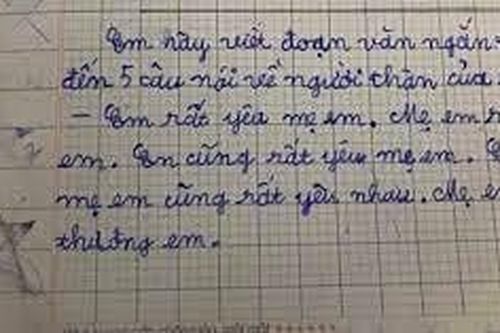 Em hãy viết đoạn văn ngắn
đến 5 câu nói về người thân của
- Em rất yêu mẹ em. Mẹ em
em. Em cũng rất yêu mẹ em.
mẹ em cũng rất yêu nhau. Mẹ
thương em.